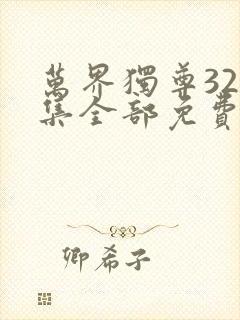 萬界獨尊32
集全部免費
卿希子